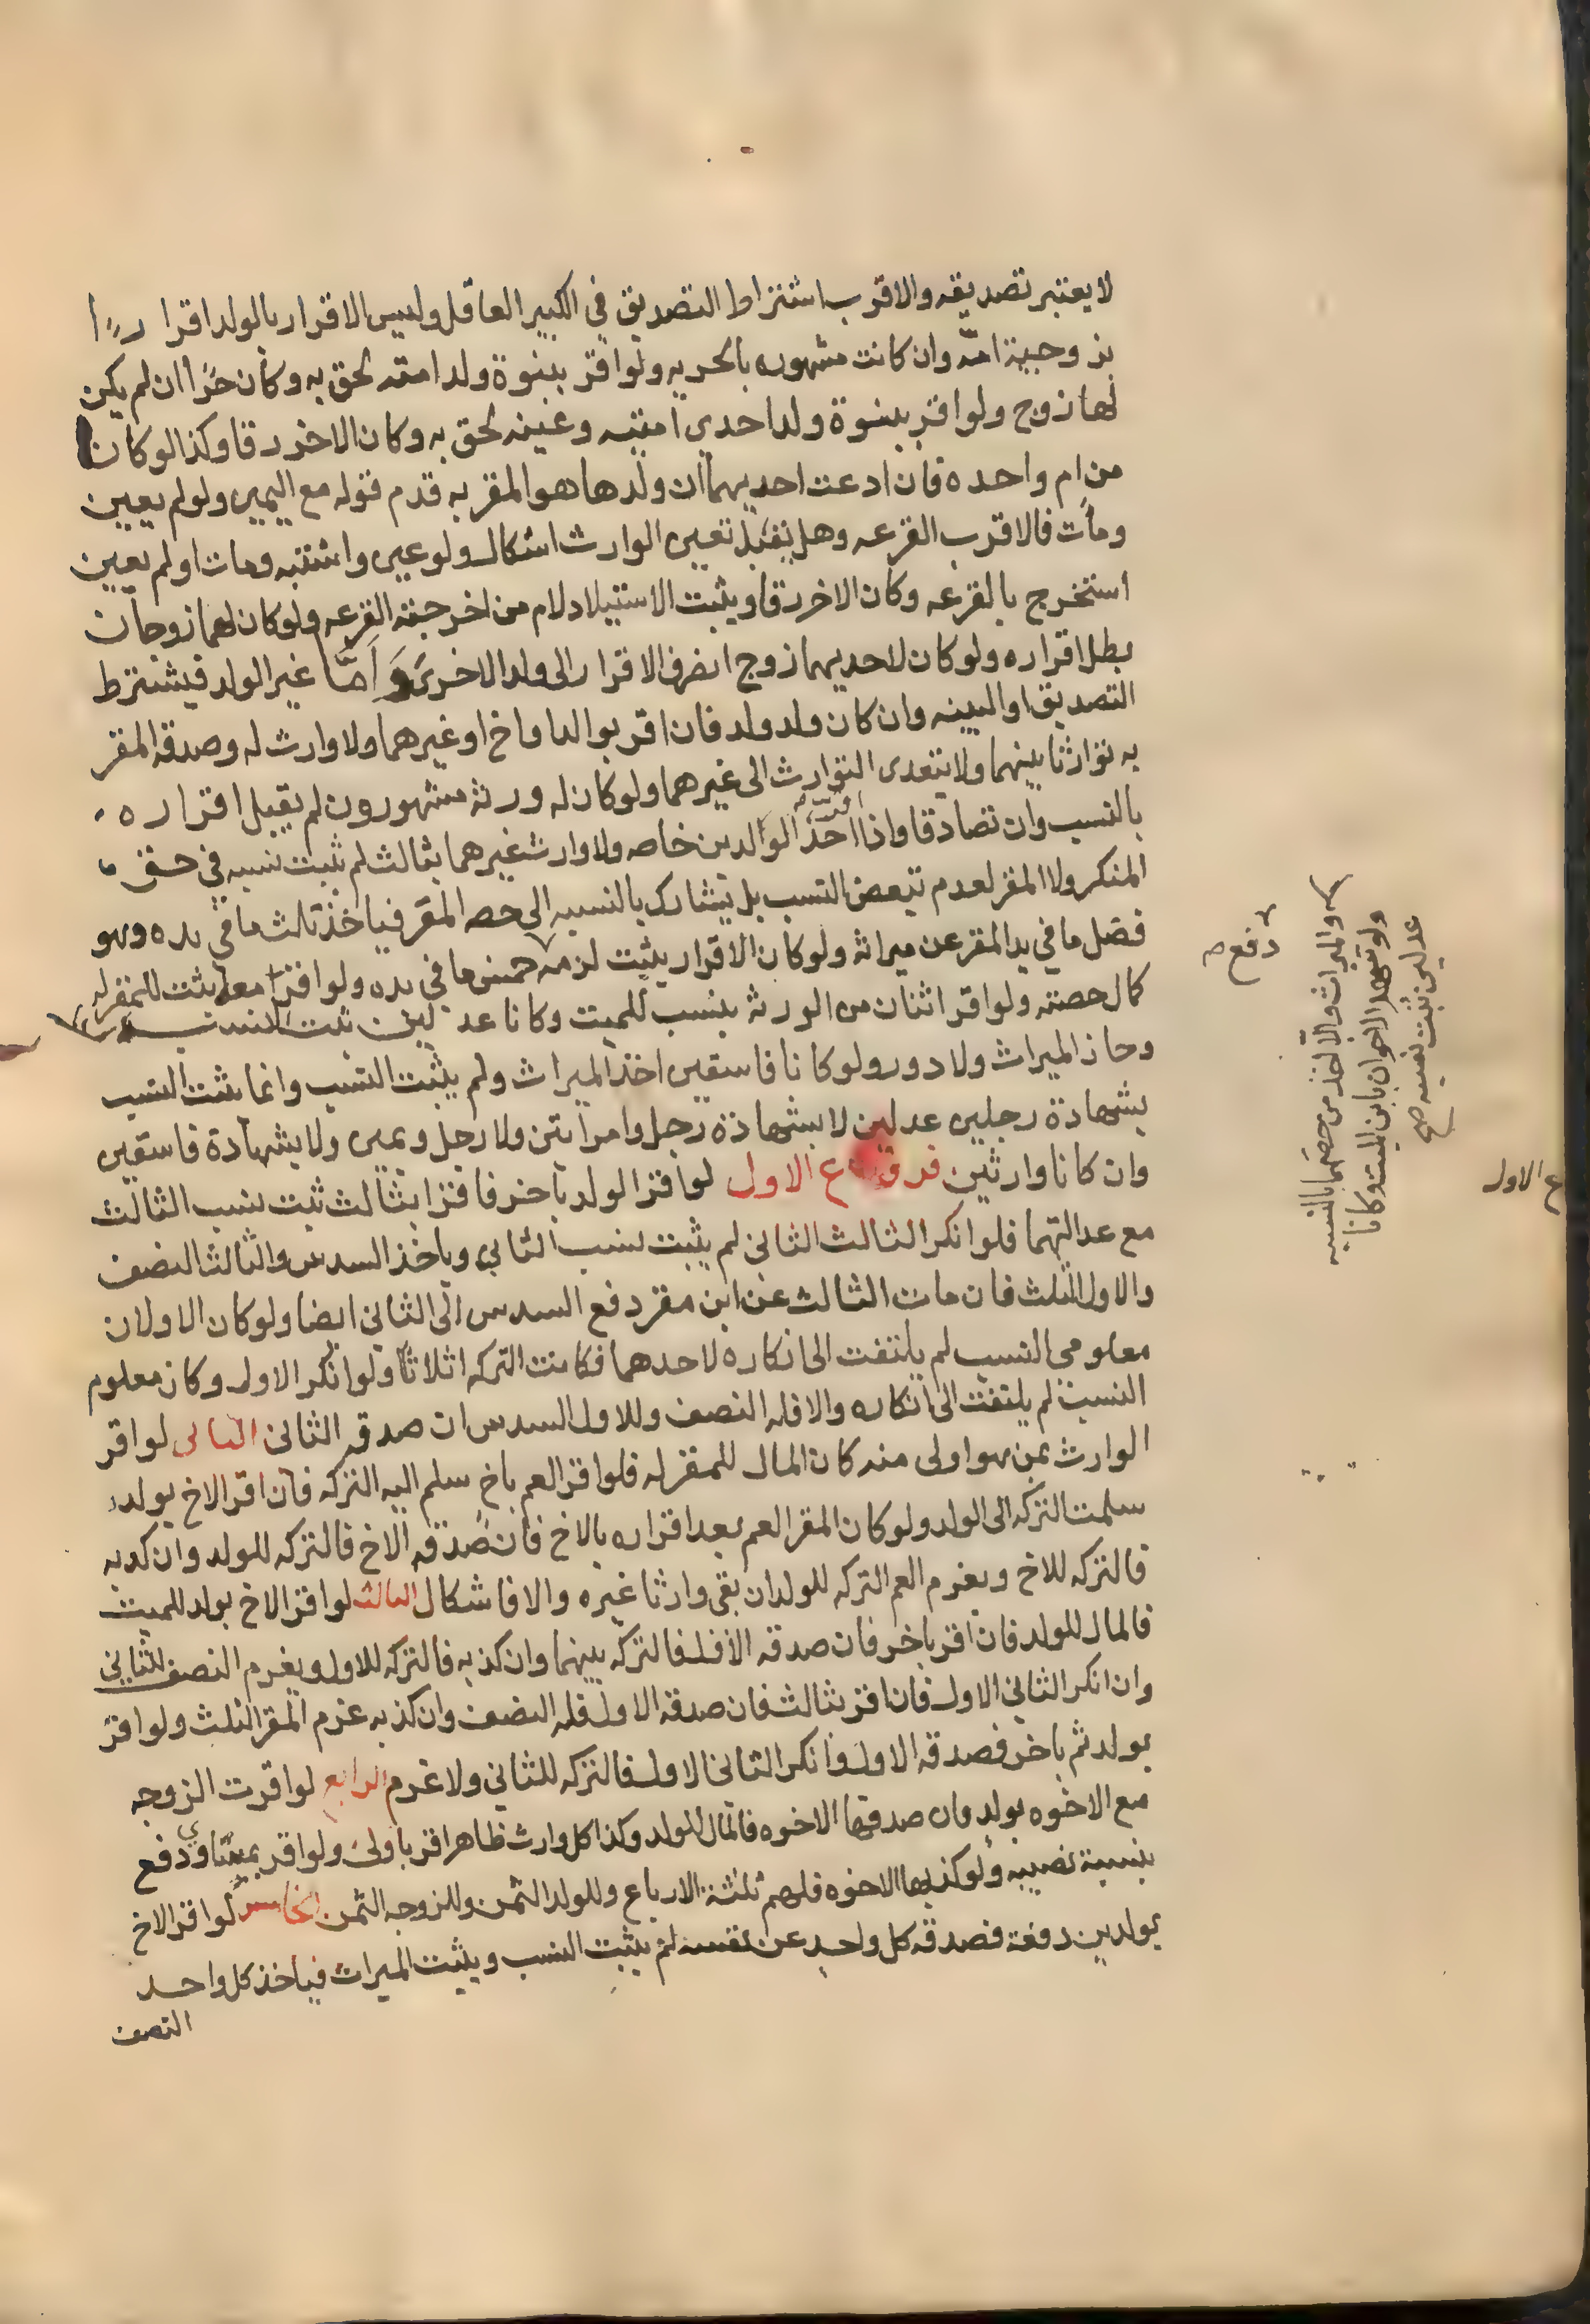 لا يعتبر تصديقه والاقرب اشتراط التصديق في الكبير العاقل وليس الاقرار بالولد اقرارًا
بزوجية امّه وان كانت مشهوره بالحريه ولو اقر ببنوة ولد امته لحق به وكان حُرًّا ان لم يكن
لها زوج ولو اقر ببنوة ولد احدي امتيه وعينه لحق به وكان الاخر رقا وكذا لو كانا
من ام واحده فان ادعت احديهما ان ولدها هو المقر به قدم قوله مع اليمين ولو لم يعين
ومات فالاقرب القرعه وهل يقبل تعيين الوارث اشكال ولو عين واشتبه ومات او لم يعين
استخرج بالقرعه وكان الاخر رقا ويثبت الاستيلاد لام من اخرجته القرعه ولو كان لهما زوجان
بطل اقراره ولو كان لاحديهما زوج انصرف الاقرار الى ولد الاخرى وَامَّا غير الولد فيشترط
التصديق او البينه وان كان ولد ولد فان اقر بوالد او اخ او غيرهما ولا وارث له وصدقه المقر
به توارثا بينهما ولا يتعدى التوارث الى غيرهما ولو كان له ورثه مشهورون لم يقبل اقراره
بالنسب وان تصادقا واذا اقرّ احد الوالدين خاصه ولا وارث غيرهما بثالث لم يثبت نسبه في حق
المنكر ولا المقر لعدم تبعض النسب بل يشارك بالنسبه الى حصه المقر فياخذ ثلث ما في يده وهو
فضل ما في يد المقر عن ميراثه ولو كان الاقرار بثبت لزمه خمس ما في يده ولو اقرّا معا ثبت للمقر له
كمال حصته ولو اقر اثنان من الورثه بنسب للميت وكانا عدلين ثبت النسب
وحاز الميراث ولا دور ولو كانا فاسقين اخذ الميراث ولم يثبت النسب وانما يثبت النسب
بشهادة رجلين عدلين لا بشهادة رجل وامراتين ولا رجل ويمين ولا بشهادة فاسقين
وان كانا وارثين فروع الاول لو اقر الولد باخر فاقرا بثالث ثبت نسب الثالث
مع عدالتهما فلو انكر الثالث الثاني لم يثبت نسب الثاني وياخذ السدس والثالث النصف
والاول الثلث فان مات الثالث عن ابن مقر دفع السدس الى الثاني ايضا ولو كان الاولان
معلومي النسب لم يلتفت الى انكاره لاحدهما فكانت التركه اثلاثا ولو انكر الاول وكان معلوم
النسب لم يلتفت الى انكاره والا فله النصف وللاول السدس ان صدقه الثاني الثاني لو اقر
الوارث بمن هو اولى منه كان المال للمقر له فلو اقر العم باخ سلم اليه التركه فان اقر الاخ بولد
سلمت التركه الى الولد ولو كان المقر العم بعد اقراره بالاخ فان صدقه الاخ فالتركه للولد وان كذبه
فالتركه للاخ ويغرم العم التركه للولد ان نفى وارثا غيره والا فاشكال الثالث لو اقر الاخ بولد للميت
فالمال للولد فان اقر باخر فان صدقه الاول فالتركه بينهما وان كذبه فالتركه للاول ويغرم النصف للثاني
وان انكر الثاني الاول فان اقر بثالث فان صدقه الاول فله النصف وان كذبه غرم المقر الثلث ولو اقر
بولد ثم باخر فصدقه الاول وانكر الثاني الاول فالتركه للثاني ولا غرم الرابع لو اقرت الزوجه
مع الاخوه بولد فان صدقها الاخوه فالمال للولد وكذا كل وارث ظاهرا اقر باولى ولو اقر بمساوي دفع
بنسبة نصيبه ولو كذبها الاخوه فلهم ثلثة الارباع وللولد الثمن وللزوجه الثمن الخامس لو اقر الاخ
بولدين دفعة فصدقه كل واحد عن نفسه لم يثبت النسب ويثبت الميراث فياخذ كل واحد
النصف
دفع
والميراث والا اخذ من حصتهما بالنسبه
ولو شهد الاخوان بابن للميت وكانا
عدلين ثبت نسبه صح
ع الاول